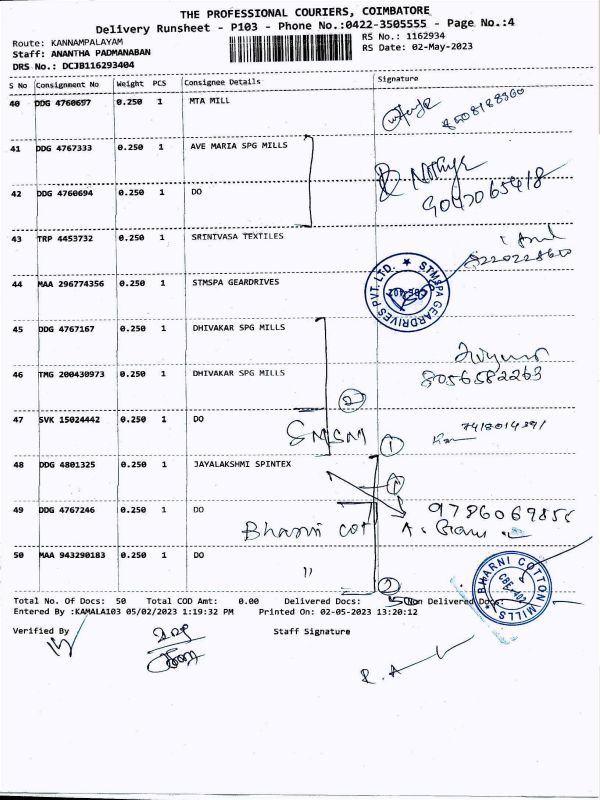 THE PROFESSIONAL COURIERS, COIMBATORE
Delivery Runsheet - P103 - Phone No.:0422-3505555 - Page No.:4
Route: KANNAMPALAYAM
RS No.: 1162934
Staff: ANANTHA PADMANABAN
RS Date: 02-May-2023
DRS No.: DCJB116293404
S No Consignment No Weight PCS Consignee Details Signature
40 DDG 4760697 0.250 1 MTA MILL
41 DDG 4767333 0.250 1 AVE MARIA SPG MILLS
42 DDG 4760694 0.250 1 DO
9047065418
43 TRP 4453732 0.250 1 SRINIVASA TEXTILES
44 MAA 296774356 0.250 1 STMSPA GEARDRIVES
STMSPA GEARDRIVES PVT. LTD.
45 DDG 4767167 0.250 1 DHIVAKAR SPG MILLS
46 TMG 200430973 0.250 1 DHIVAKAR SPG MILLS
8056582263
2
47 SVK 15024442 0.250 1 DO
SMSM 1
48 DDG 4801325 0.250 1 JAYALAKSHMI SPINTEX
49 DDG 4767246 0.250 1 DO
Bharni cot
50 MAA 943290183 0.250 1 DO
"
2
BHARNI COTTON MILLS
Total No. Of Docs: 50 Total COD Amt: 0.00 Delivered Docs: 50 Non Delivered Docs:
Entered By :KAMALA103 05/02/2023 1:19:32 PM Printed On: 02-05-2023 13:20:12
Verified By Staff Signature
R. A